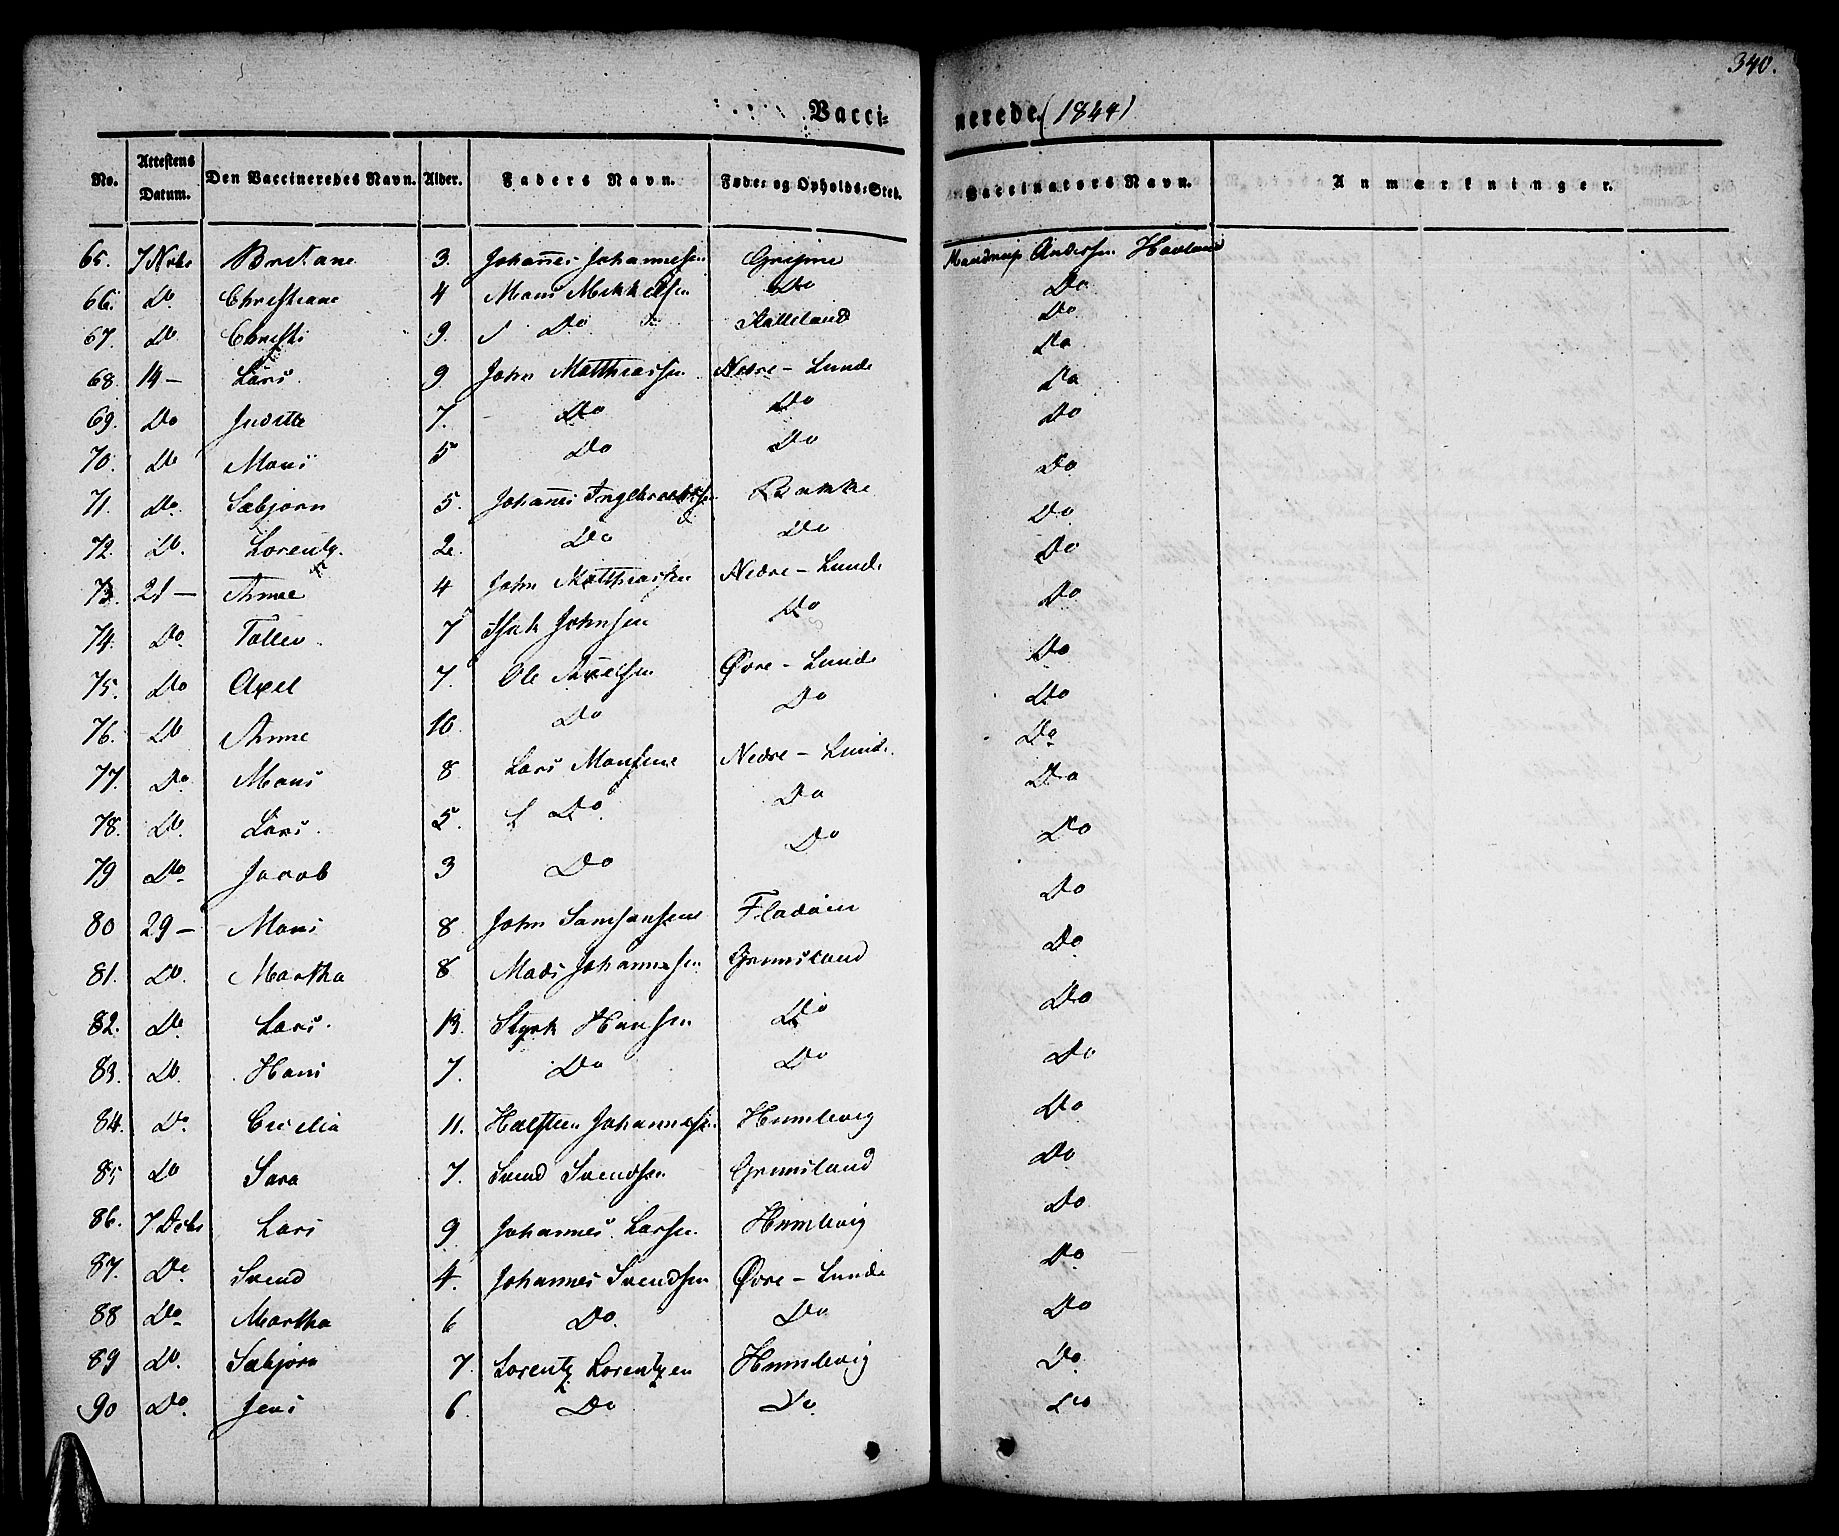 340.
Vaccinerede. (1844)
No. Attestens Datum. Den Vaccineredes Navn. Alder. Faders Navn. Føde- og Opholds-Sted. Vaccinators Navn. Anmærkninger.
65. 7 Nvbr 3. Johannes Johannesen Grisme Mandrup Anderssen Havland
66. Do Christiane 4 Mons Mikkelsen Do Do
67. Do Christi 9. Do Do
68. 14 – Lars 9 John Matthiassen Nedre – Lunde Do
69. Do Judithe 7. Do Do Do
70. Do Mons 5 Do Do Do
71. Do Sæbjørn 5. Johannes Ingebrecktsen Bakke Do
72. Do. Lorentz. 2. Do Do Do
73. 21 – Anne 4 John Matthiassen Nedre – Lunde Do
74. Do. Tollev 7 Isak Johnsen Do Do
75. Do Axel 7. Ole Axelsen Øvre – Lunde Do
76. Do Anne 10. Do Do Do
77. Do. Mons 8 Lars Monsene Nedre – Lunde Do
78. Do. Lars. 5. Do. Do Do
79 Do Jacob 3 Do Do Do
80 29 – Mons 8. John Samsonsene Fladøien Do
81. Do. Martha 8 Mads Johannesen Grimsland Do
82. Do Lars. 13. Styrk Hansen Do Do
83. Do. Hans 7. Do Do Do
84. Do. Cecilia 11. Halsteen Johannesen Humlevig Do
85 Do Sara 7. Svend Svendsen Grimsland Do
86. 7 Debr Lars 9 Johannes Larsen Humlevig Do
87. Do Svend 4. Johannes Svendsen Øvre – Lunde Do
88 Do Martha 6 Do. Do Do
89 Do. Sæbjørn 7. Lorentz Lorentzen Humlevig Do
90 Do Jens 6. Do Do Do